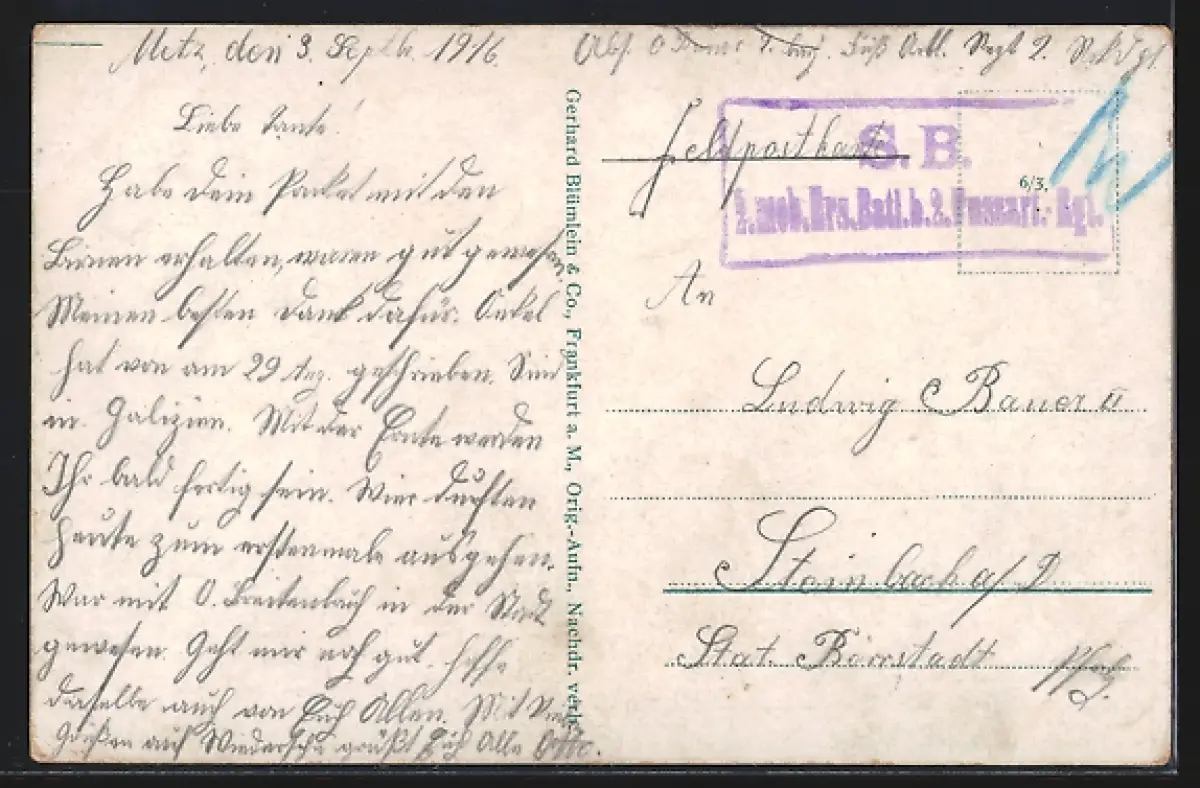 Metz, den 3. Septb. 1916.
Liebe Tante!
Habe dein Packet mit den
Birnen erhalten, waren gut gewesen.
Meinen besten Dank dafür. Onkel
hat von am 29 geschrieben. Sind
in Galizien. Mit der Ernte werden
Ihr bald fertig sein. Wier durften
heute zum erstenmale ausgehen.
War mit O. Breitenbach in der Stadt
gewesen. Geht mir noch gut. Hoffe
daselbe auch von Euch Allen. Mit viele
Grüßen auf Wiedersehn grüßt Euch Alle Otto.
Gerhard Blümlein & Co., Frankfurt a. M., Orig.-Aufn., Nachdr. verb.
Abs. O. Fuß Artl. Regt 2.
Feldpostkarte
S. B.
mob. Ers. Batl. b. 2. Fussart.-Rgt.
6/3.
An
Ludwig Bauer II
Steinbach a/D
Stat. Börrstadt Pfalz.